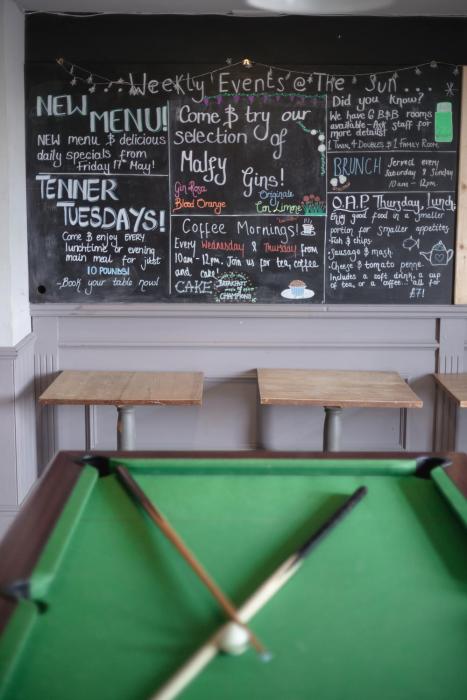 Weekly Events @ The Sun...
NEW
MENU!
NEW menu & delicious
daily specials from
Friday 17th May!
TENNER
TUESDAYS!
Come & enjoy EVERY
lunchtime or evening
main meal for just
10 POUNDS!
-Book your table now!
Come & try our
selection of
Malfy
Gins!
Gin Rosa
Originale
Blood Orange
Con Limone
Coffee Mornings!
Every Wednesday & Thursday from
10am-12pm. Join us for tea, coffee
and cake!
CAKE
BREAKFAST
of
CHAMPIONS
Did you know?
We have 6 B&B rooms
available - Ask staff for
more details!
1 Twin, 4 Doubles & 1 Family Room
BRUNCH
Served every
Saturday & Sunday
10am - 12pm.
O.A.P Thursday Lunch.
Enjoy good food in a smaller
portion for smaller appetites
Fish & chips
Sausage & mash
Cheese & tomato penne
Includes a soft drink, a cup
of tea, or a coffee... all for
£7!